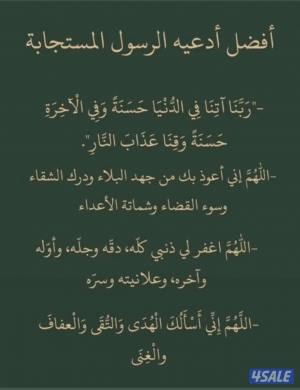 أفضل أدعيه الرسول المستجابة
-"رَبَّنَا آتِنَا فِي الدُّنْيَا حَسَنَةً وَفِي الْآخِرَةِ
حَسَنَةً وَقِنَا عَذَابَ النَّارِ".
-اللهُمَّ إني أعوذ بك من جهد البلاء ودرك الشقاء
وسوء القضاء وشماتة الأعداء
-اللهُمَّ اغفر لي ذنبي كلّه، دقّه وجلّه، وأوّله
وآخره، وعلانيته وسرّه
-اللَّهُمَّ إنِّي أَسْأَلُكَ الْهُدَى وَالتُّقَى وَالْعفافَ
والْغِنَى
4SALE